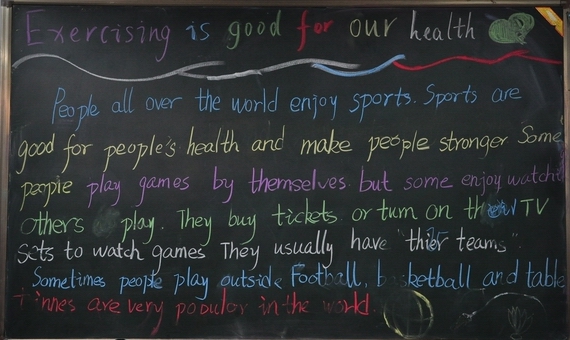 Exercising is good for our health
People all over the world enjoy sports. Sports are
good for people's health and make people stronger Some
people play games by themselves. but some enjoy watchi
others play. They buy tickets or turn on their TV
Sets to watch games They usually have "thier teams".
Sometimes people play outside Football, basketball and table
tinnes are very populor in the world.